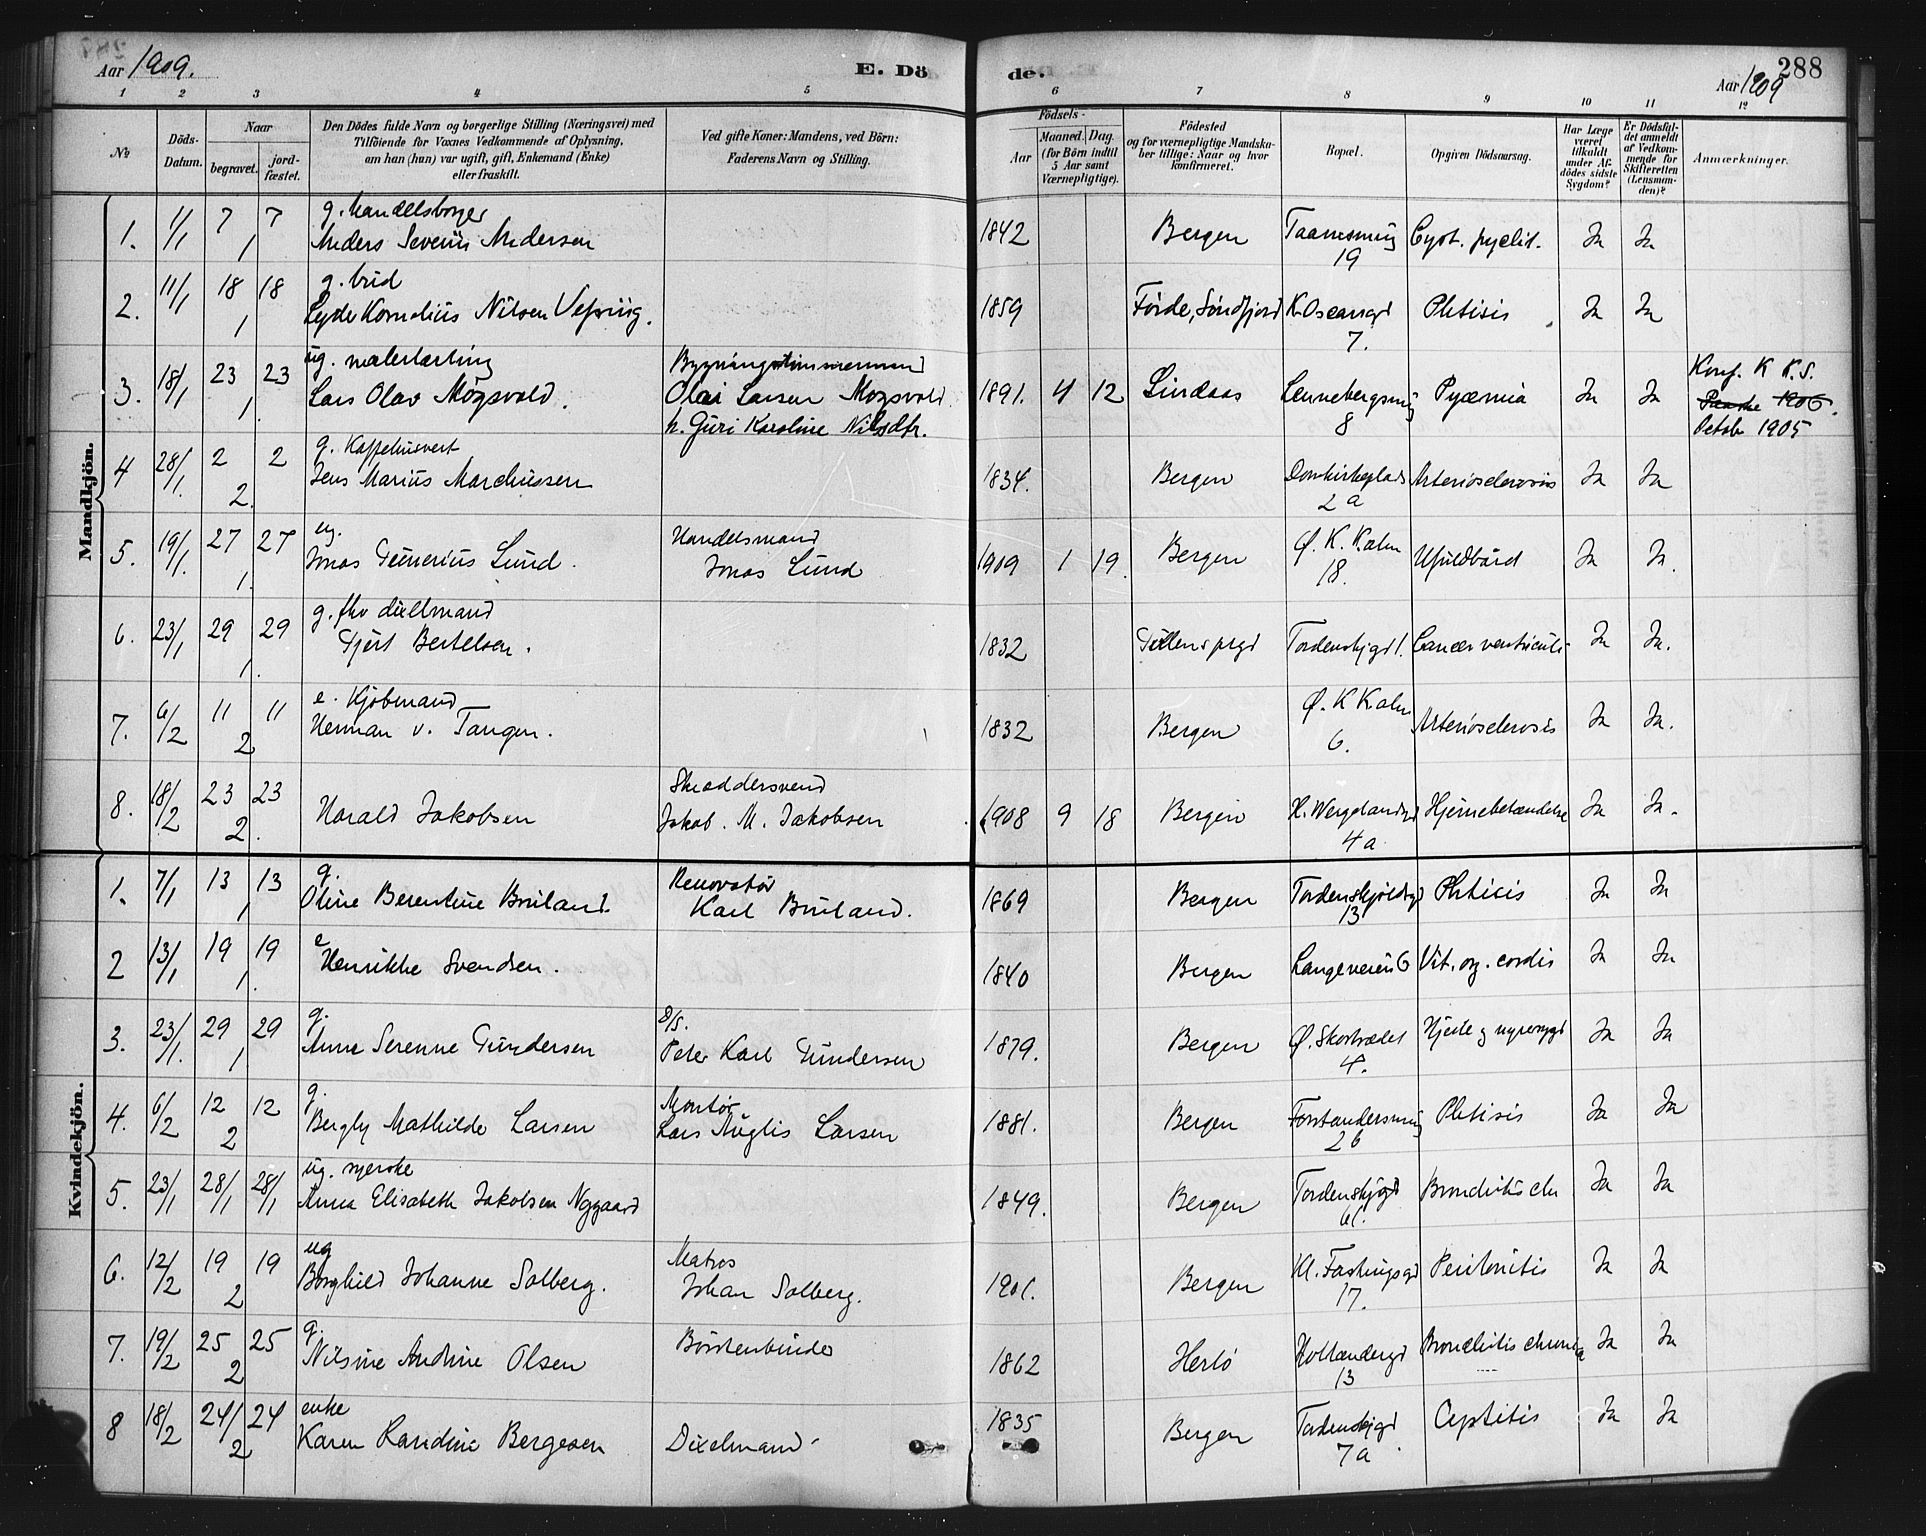 Aar 1909. E. Döde. Aar 1909 288
1 2 3 4 5 6 7 8 9 10 11 12
№
Döds-Datum.
Naar
begravet.
jordfæstet.
Den Dödes fulde Navn og borgerlige Stilling (Næringsvei) med
Tilföiende for Voxnes Vedkommende af Oplysning,
om han (hun) var ugift, gift, Enkemand (Enke)
eller fraskilt.
Ved gifte Koner: Mandens, ved Börn:
Faderens Navn og Stilling.
Födsels-
Aar
Maaned. Dag.
(for Börn indtil
5 Aar samt
Værnepligtige).
Födested
og for værnepligtige Mandska-
ber tillige: Naar og hvor
konfirmeret.
Bopæl.
Opgiven Dödsaarsag.
Har Læge
været
tilkaldt
under Af-
dödes sidste
Sygdom?
Er Dödsfal-
det anmeldt
af Vedkom-
mende for
Skifteretten
(Lensman-
den)?
Anmærkninger.
Mandkjön.
g. Handelsborger
1. 1/1 7/1 7 Anders Severin Andersen 1842 Bergen 19 Cyst. pyelit. Ja Ja
g. bud
2. 11/1 18/1 18 Lyder Kornelius Nilsen Vefring. 1859 Förde, Söndfjord K. Oscarsgd 7. Phtisis Ja Ja
ug. malerlærling Bygningstømmermand
3. 18/1 23/1 23 Lars Olav Mogsvold. Olai Larsen Mogsvold 1891. 4 12 Lindaas Lennebergsmug 8 Pyæmia Ja Ja Konf. K K.S.
h. Guri Karoline Nilsdtr. Paaske 1906.
Octob 1905
g. Kaffehusvert
4 28/1. 2/2. 2 Jens Marius Marchussen 1834. Bergen Domkirkeplads 2a Arteriosclerosis Ja Ja
ug. Handelsmand
5. 19/1. 27/1. 27 Jonas Gunerius Lund. Jonas Lund 1909 1 19. Bergen Ø. K. Kalm 18. Ufuldbård Ja Ja.
g. fhv dixelmand
6. 23/1 29/1. 29 Gjert Bertelsen. 1832 Gullens prgd Tordenskjgd 1. Cancer ventriculi Ja Ja.
e. Kjøbmand
7. 6/2 11/2 11 Herman v. Tangen. 1832 Bergen Ø. K Kalm 6. Arteriosclerosis Ja Ja.
Skreddersvend
8. 18/2 23/2. 23 Harald Jakobsen Jakob. M. Jakobsen 1908 9 18 Bergen H. Wergelandsgd 4a Hjernebetændelse Ja Ja.
Kvindekjön.
g. Renovatör
1. 7/1 13/1 13 Oline Berentine Bruland. Karl Bruland. 1869 Bergen Tordenskjoldsgd 13 Phtisis Ja Ja
e
2 13/1 19/1. 19 Henrikke Svendsen. 1840 Bergen Langeveien 6 Vit. org. cordis Ja Ja
g. d/s.
3. 23/1. 29/1 29 Anne Serenne Gundersen Peter Karl Gundersen 1879. Bergen Ø. Skostrædet 4. Hjerte og nyresygd Ja Ja
g. Montør
4. 6/2 12/2 12 Bergly Mathilde Larsen Lars Larsen 1881. Bergen Forstandersmug 26 Phtisis Ja Ja
ug. syerske
5. 23/1 28/1 28/1 Anna Elisabeth Jakobsen Nygaard 1849. Bergen Tordenskjgd 61. Bronchitis chr Ja Ja
ug Matros
6. 12/2 19/2 19 Borghild Johanne Solberg. Johan Solberg. 1901. Bergen Kl. Fastingsgd 17. Peritonitis Ja Ja
g. Börstenbinder
7. 19/2 25/2 25 Nilsine Andrine Olsen 1862 Herlö Hollændergd 13 Bronchitis chronica Ja Ja
enke
8 18/2 24/2 24 Karen Randine Bergesen Dixelmand 1835 Bergen Tordenskjgd 7a Ja Ja